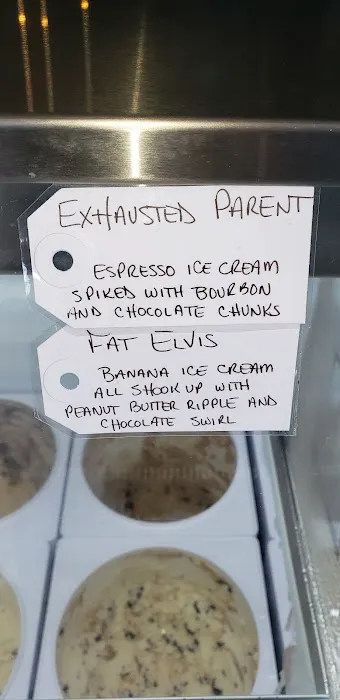 EXHAUSTED PARENT
ESPRESSO ICE CREAM
SPIKED WITH BOURBON
AND CHOCOLATE CHUNKS
FAT ELVIS
BANANA ICE CREAM
ALL SHOOK UP WITH
PEANUT BUTTER RIPPLE AND
CHOCOLATE SWIRL